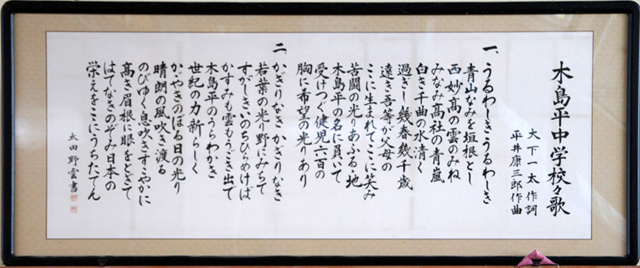 木島平中学校々歌
大下一太 作詞
平井康三郎 作曲
一、うるわしきうるわしき
青山なみを垣根とし
西妙高の雲のみね
みなみ高社の青嵐
白き千曲の水清く
過ぎし幾春幾千歳
遠き吾等が父母の
ここに生まれてここに笑み
苦闘の光りあふる地
木島平の名に負いて
受けつぐ健児六百の
胸に希望の光りあり
二、かぎりなきかぎりなき
若葉の光り野にみちて
すがしきいのちひらめけば
かすみも雲もうごき出て
木島平のうらわかき
世紀の力新らしく
かゞやきのぼる日の光り
晴朗の風吹き渡る
のびゆく息吹きすこやかに
高き眉根に眼をとぎて
はてなきのぞみ日本の
栄えをここにうちたてん
太田野雲書